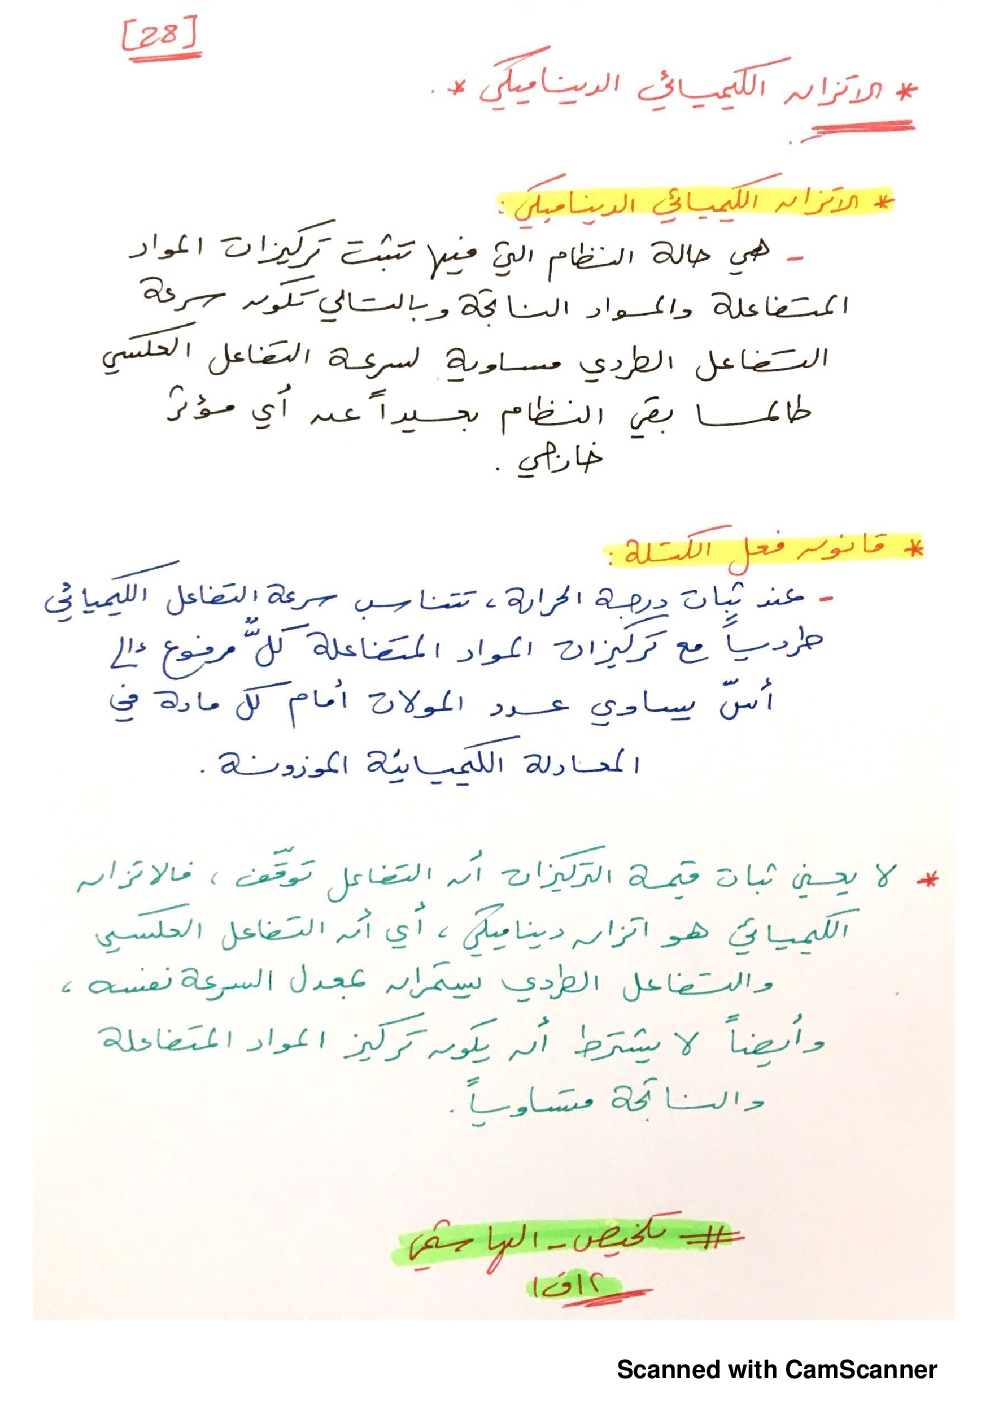 [28]
* الاتزان الكيميائي الديناميكي *.
* الاتزان الكيميائي الديناميكي :
- هي حالة النظام التي فيها تثبت تركيزات المواد
المتفاعلة والمواد الناتجة وبالتالي تكون سرعة
التفاعل الطردي مساوية لسرعة التفاعل العكسي
طالما بقي النظام بعيداً عن أي مؤثر
خارجي .
* قانون فعل الكتلة :
- عند ثبات درجة الحرارة ، تتناسب سرعة التفاعل الكيميائي
طردياً مع تركيزات المواد المتفاعلة كلٌّ مرفوع إلى
أسّ يساوي عدد المولات أمام كل مادة في
المعادلة الكيميائية الموزونة .
* لا يعني ثبات قيمة التركيزات أن التفاعل توقّف ، فالاتزان
الكيميائي هو اتزان ديناميكي ، أي أن التفاعل العكسي
والتفاعل الطردي يستمران بمعدل السرعة نفسه ،
وأيضاً لا يشترط أن يكون تركيز المواد المتفاعلة
والناتجة متساوياً .
# تلخيص - الهاشمي
١٢ف١
Scanned with CamScanner